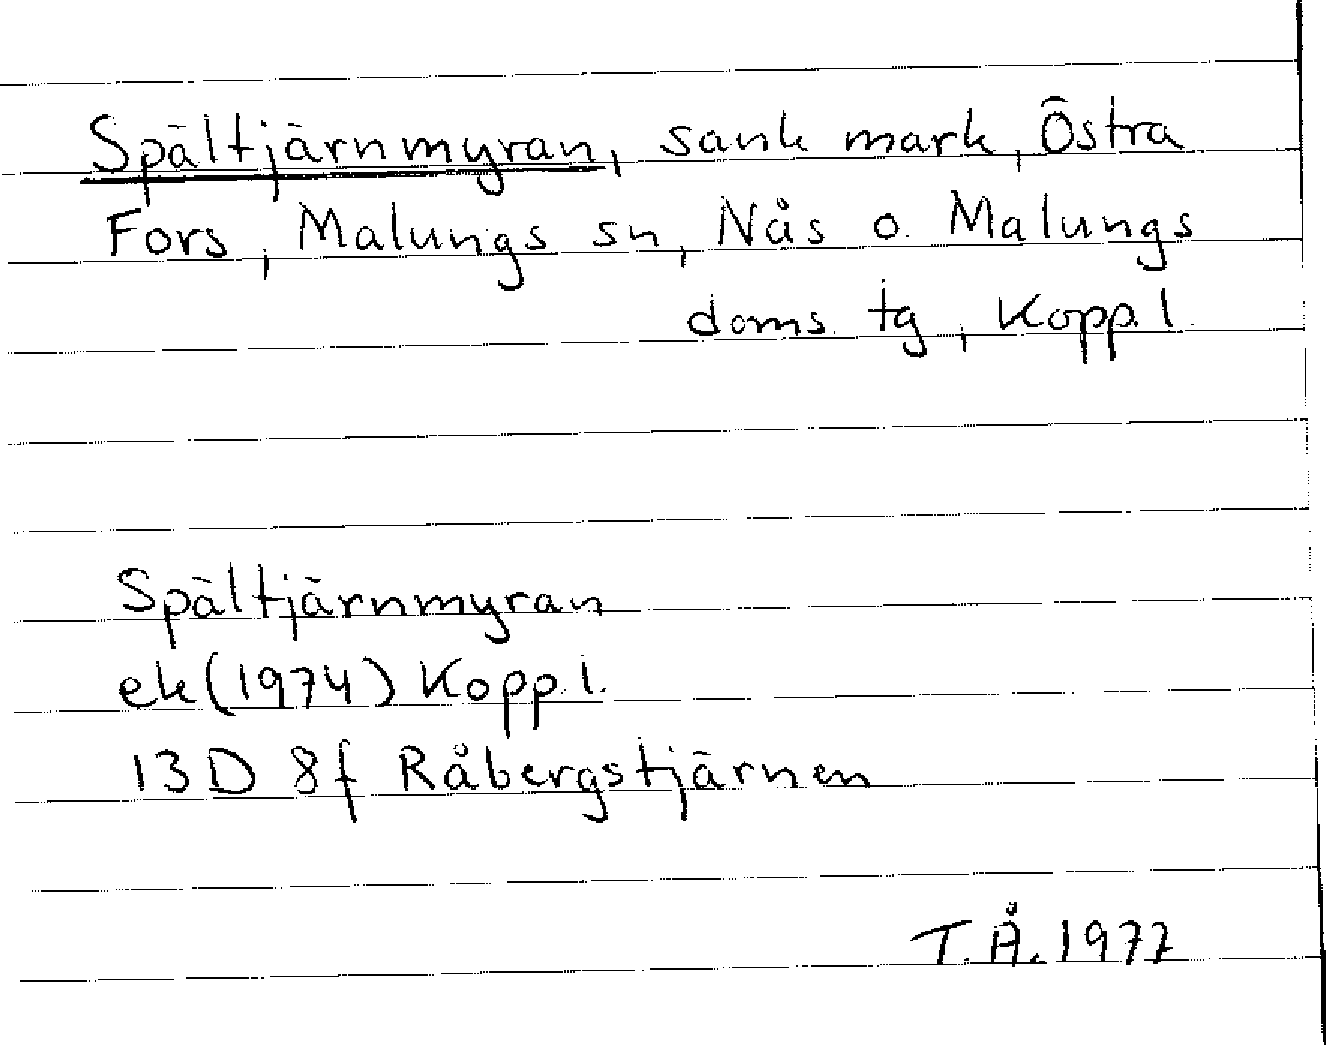 Spältjärnmyran, sank mark, Östra
Fors, Malungs sn, Nås o. Malungs
doms. tg, Kopp. l
Spältjärnmyran
ek (1974) Kopp. l.
13 D 8f Råbergstjärnen
T. Å. 1977